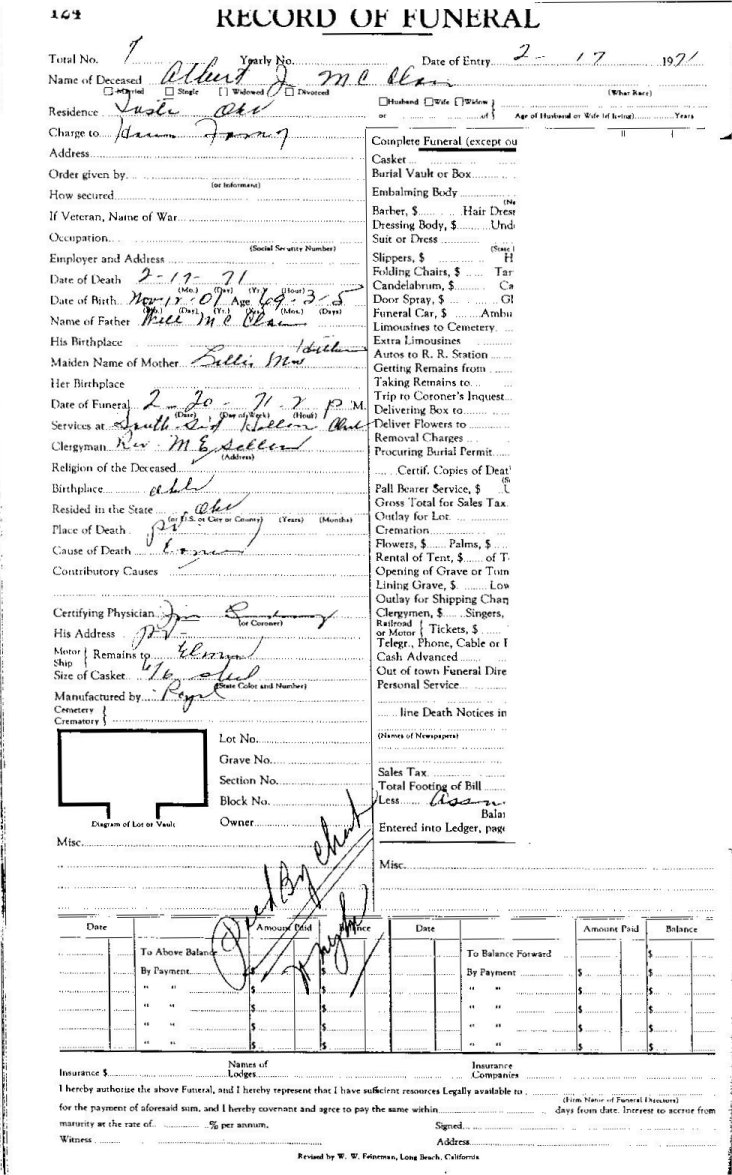 164
RECORD OF FUNERAL
Total No. 7 Yearly No. Date of Entry 2-17 1971
Name of Deceased Albert J McClain
Married Single Widowed Divorced
(What Race)
Residence Tusla Okla
Husband Wife Widow
or of Age of Husband or Wife (if living) Years
Charge to
Address
Order given by
(or Informant)
How secured
If Veteran, Name of War
Occupation
(Social Security Number)
Employer and Address
Date of Death 2-17-71
(Mo.) (Day) (Yr.) (Hour)
Date of Birth Nov-12-01 Age 69-3-5
(Mo.) (Day) (Yr.) (Yrs.) (Mos.) (Days)
Name of Father Will McClain
His Birthplace
Maiden Name of Mother Lillie Mae
Her Birthplace
Date of Funeral 2-20-71-2 P M.
(Date) (Day of Week) (Hour)
Services at South Side
Clergyman Rev. M E Sellers
(Address)
Religion of the Deceased
Birthplace
Resided in the State Okla
(or U.S. or City or County) (Years) (Months)
Place of Death PV
Cause of Death
Contributory Causes
Certifying Physician Jim
(or Coroner)
His Address PV
Motor
Ship
Remains to Elmore
Size of Casket 6/6 steel
(State Color and Number)
Manufactured by
Cemetery
Crematory
Lot No.
Grave No.
Section No.
Block No.
Owner
Diagram of Lot or Vault
Misc.
Complete Funeral (except ou
Casket
Burial Vault or Box
Embalming Body
(Ne
Barber, $ Hair Dress
Dressing Body, $ Und
Suit or Dress
(State
Slippers, $ H
Folding Chairs, $ Tar
Candelabrum, $ Ca
Door Spray, $ Gl
Funeral Car, $ Ambu
Limousines to Cemetery
Extra Limousines
Autos to R. R. Station
Getting Remains from
Taking Remains to
Trip to Coroner's Inquest
Delivering Box to
Deliver Flowers to
Removal Charges
Procuring Burial Permit
Certif. Copies of Deat
Pall Bearer Service, $
Gross Total for Sales Tax
Outlay for Lot
Cremation
Flowers, $ Palms, $
Rental of Tent, $ of T
Opening of Grave or Tom
Lining Grave, $ Low
Outlay for Shipping Char
Clergymen, $ Singers,
Railroad
or Motor Tickets, $
Telegr., Phone, Cable or
Cash Advanced
Out of town Funeral Dire
Personal Service
line Death Notices in
(Names of Newspapers)
Sales Tax
Total Footing of Bill
Less Assn
Balan
Entered into Ledger, page
Misc.
Paid By Check
Date Amount Paid Balance Date Amount Paid Balance
To Above Balance $ To Balance Forward $
By Payment $ By Payment $ $
" " $ $ " " $ $
" " $ $ " " $ $
" " $ $ " " $ $
" " $ $ " " $ $
Insurance $ Names of Lodges Insurance Companies
I hereby authorize the above Funeral, and I hereby represent that I have sufficient resources Legally available to
(Firm Name of Funeral Directors)
for the payment of aforesaid sum, and I hereby covenant and agree to pay the same within days from date. Interest to accrue from
maturity at the rate of % per annum. Signed
Witness Address
Revised by W. W. Feineman, Long Beach, California